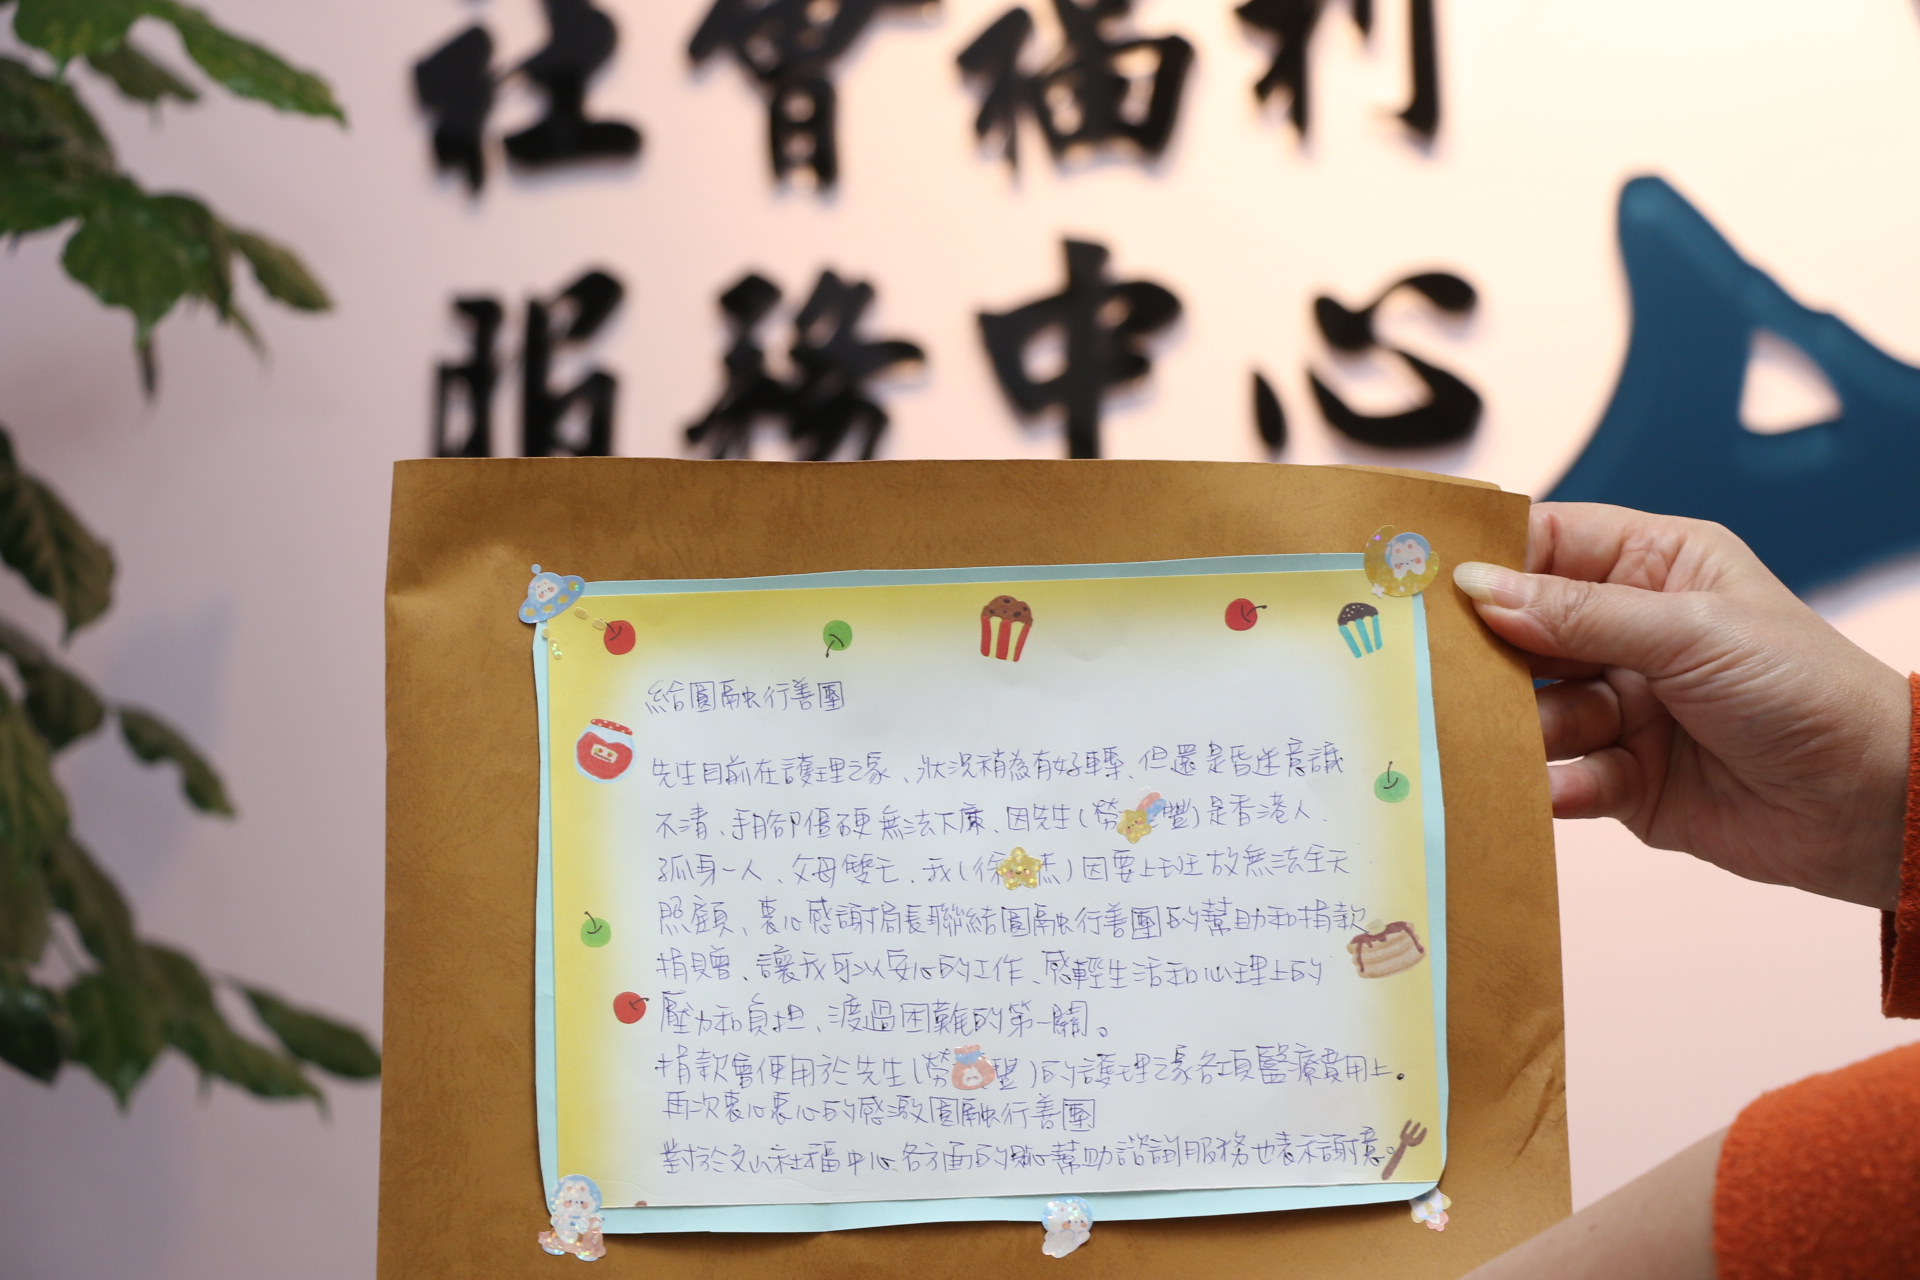 社會福利
服務中心
給圓融行善團
先生目前在護理之家、狀況稍為有好轉、但還是昏迷意識
不清、手腳僵硬無法下床、因先生(勞 豐)是香港人、
孤身一人、父母雙亡、我(徐 杰)因要上班故無法全天
照顧、衷心感謝局長聯結圓融行善團的幫助和捐款
捐贈、讓我可以安心的工作、感輕生活和心理上的
壓力和負担、渡過困難的第一關。
捐款會使用於先生(勞 豐)的護理之家各項醫療費用上。
再次衷心衷心的感激圓融行善團
對於文山社福中心各方面的 心幫助諮詢服務也表示謝意。